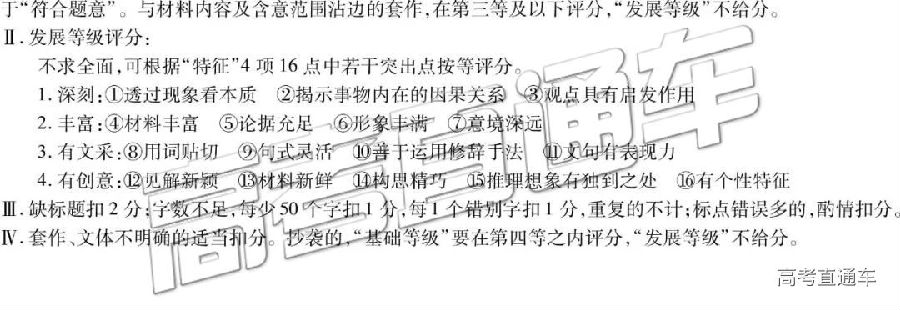 于“符合题意”。与材料内容及含意范围沾边的套作,在第三等及以下评分,“发展等级”不给分。
Ⅱ.发展等级评分:
不求全面,可根据“特征”4项16点中若干突出点按等评分。
1.深刻:①透过现象看本质 ②揭示事物内在的因果关系 ③观点具有启发作用
2.丰富:④材料丰富 ⑤论据充足 ⑥形象丰满 ⑦意境深远
3.有文采:⑧用词贴切 ⑨句式灵活 ⑩善于运用修辞手法 ⑪文句有表现力
4.有创意:⑫见解新颖 ⑬材料新鲜 ⑭构思精巧 ⑮推理想象有独到之处 ⑯有个性特征
Ⅲ.缺标题扣2分;字数不足,每少50个字扣1分,每1个错别字扣1分,重复的不计;标点错误多的,酌情扣分。
Ⅳ.套作、文体不明确的适当扣分。抄袭的,“基础等级”要在第四等之内评分,“发展等级”不给分。
高考直通车
高考直通车